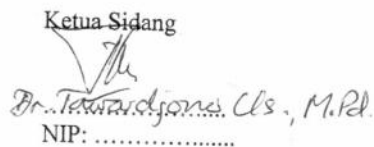 Ketua Sidang
Dr. Tawardjono Us., M.Pd.
NIP: ..................